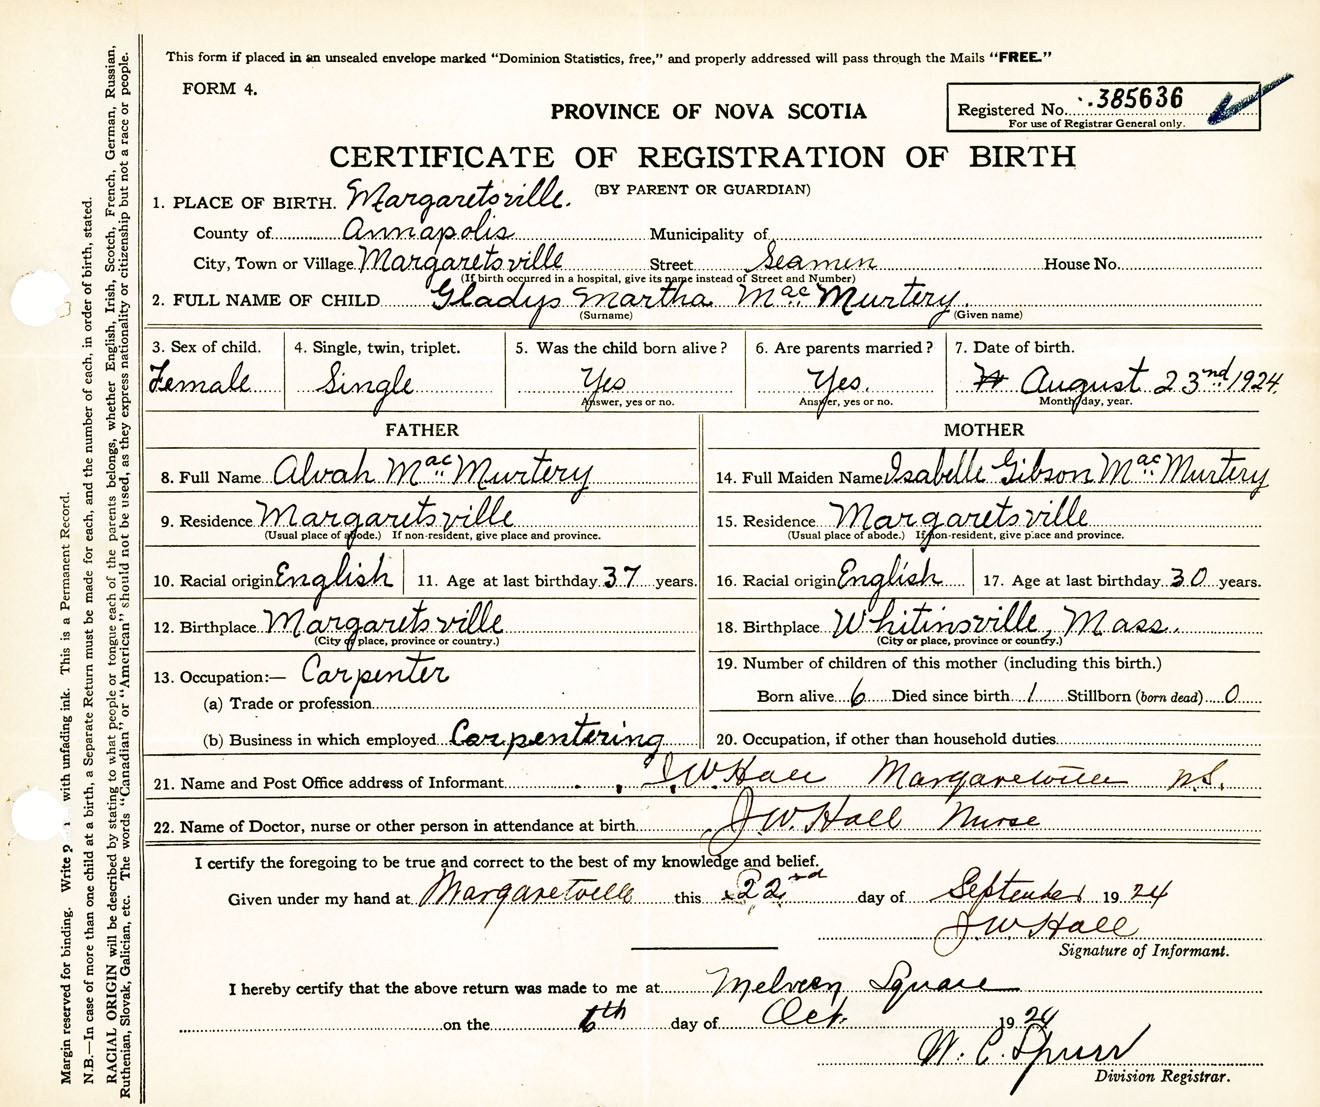 This form if placed in an unsealed envelope marked “Dominion Statistics, free,” and properly addressed will pass through the Mails “FREE.”
FORM 4.
Registered No. 385636
For use of Registrar General only.
PROVINCE OF NOVA SCOTIA
CERTIFICATE OF REGISTRATION OF BIRTH
(BY PARENT OR GUARDIAN)
1. PLACE OF BIRTH. Margaretsville.
County of Annapolis Municipality of
City, Town or Village Margaretsville Street Seamen House No.
(If birth occurred in a hospital, give its name instead of Street and Number)
2. FULL NAME OF CHILD Gladys Martha Mac Murtery.
(Surname) (Given name)
3. Sex of child. 4. Single, twin, triplet. 5. Was the child born alive? 6. Are parents married? 7. Date of birth.
Female Single Yes Yes. August 23nd 1924.
Answer, yes or no. Answer, yes or no. Month, day, year.
FATHER MOTHER
8. Full Name Alvah Mac Murtery 14. Full Maiden Name Isabelle Gibson Mac Murtery
9. Residence Margaretsville 15. Residence Margaretsville
(Usual place of abode.) If non-resident, give place and province. (Usual place of abode.) If non-resident, give place and province.
10. Racial origin English 11. Age at last birthday 37 years. 16. Racial origin English 17. Age at last birthday 30 years.
12. Birthplace Margaretsville 18. Birthplace Whitinsville, Mass.
(City or place, province or country.) (City or place, province or country.)
13. Occupation:— Carpenter 19. Number of children of this mother (including this birth.)
(a) Trade or profession Born alive 6 Died since birth 1 Stillborn (born dead) 0
(b) Business in which employed Carpentering 20. Occupation, if other than household duties
21. Name and Post Office address of Informant J. W. Hall Margaretville N.S.
22. Name of Doctor, nurse or other person in attendance at birth J. W. Hall Nurse
I certify the foregoing to be true and correct to the best of my knowledge and belief.
Given under my hand at Margaretville this 22nd day of September 1924
J W Hall
Signature of Informant.
I hereby certify that the above return was made to me at Melvern Square
on the 6th day of Oct. 1924
W. C. Spurr
Division Registrar.
Margin reserved for binding. Write with unfading ink. This is a Permanent Record.
N.B.—In case of more than one child at a birth, a Separate Return must be made for each, and the number of each, in order of birth, stated.
RACIAL ORIGIN will be described by stating to what people or tongue each of the parents belongs, whether English, Irish, Scotch, French, German, Russian,
Ruthenian, Slovak, Galician, etc. The words “Canadian” or “American” should not be used, as they express nationality or citizenship but not a race or people.